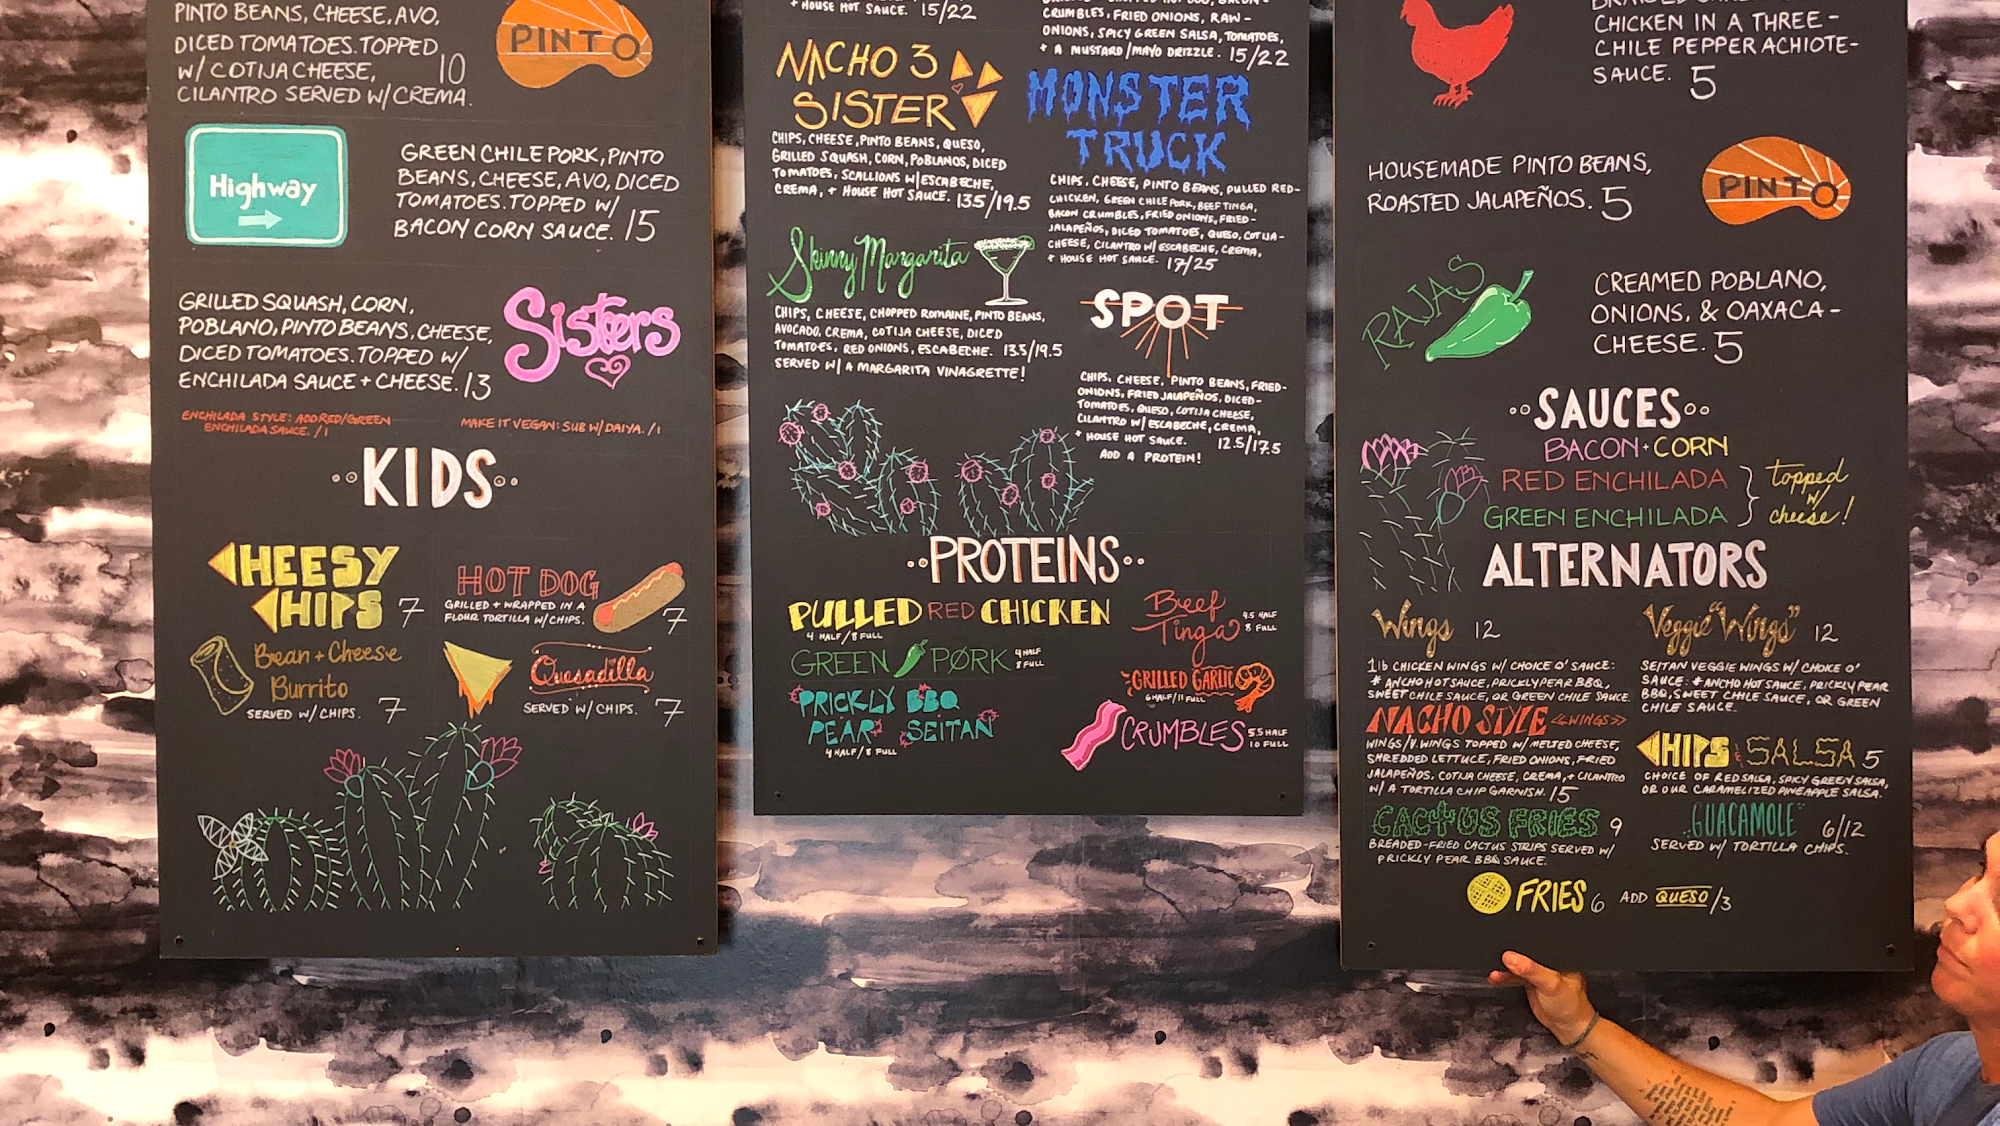 PINTO BEANS, CHEESE, AVO,
DICED TOMATOES. TOPPED
W/ COTIJA CHEESE, 10
CILANTRO SERVED W/ CREMA.
PINTO
Highway
GREEN CHILE PORK, PINTO
BEANS, CHEESE, AVO, DICED
TOMATOES. TOPPED W/
BACON CORN SAUCE. 15
GRILLED SQUASH, CORN,
POBLANO, PINTO BEANS, CHEESE,
DICED TOMATOES. TOPPED W/
ENCHILADA SAUCE + CHEESE. 13
Sisters
ENCHILADA STYLE: ADD RED/GREEN
ENCHILADA SAUCE. /1
MAKE IT VEGAN: SUB W/ DAIYA. /1
KIDS
CHEESY
CHIPS 7
HOT DOG
GRILLED + WRAPPED IN A
FLOUR TORTILLA W/ CHIPS. 7
Bean + Cheese
Burrito
SERVED W/ CHIPS. 7
Quesadilla
SERVED W/ CHIPS. 7
+ HOUSE HOT SAUCE. 15/22
NACHO 3
SISTER
CHIPS, CHEESE, PINTO BEANS, QUESO,
GRILLED SQUASH, CORN, POBLANOS, DICED
TOMATOES, SCALLIONS W/ ESCABECHE,
CREMA, + HOUSE HOT SAUCE. 13.5/19.5
Skinny Margarita
CHIPS, CHEESE, CHOPPED ROMAINE, PINTO BEANS,
AVOCADO, CREMA, COTIJA CHEESE, DICED
TOMATOES, RED ONIONS, ESCABECHE. 13.5/19.5
SERVED W/ A MARGARITA VINAGRETTE!
CRUMBLES, FRIED ONIONS, RAW-
ONIONS, SPICY GREEN SALSA, TOMATOES,
+ A MUSTARD/MAYO DRIZZLE. 15/22
MONSTER
TRUCK
CHIPS, CHEESE, PINTO BEANS, PULLED RED-
CHICKEN, GREEN CHILE PORK, BEEF TINGA,
BACON CRUMBLES, FRIED ONIONS, FRIED-
JALAPEÑOS, DICED TOMATOES, QUESO, COTIJA-
CHEESE, CILANTRO W/ ESCABECHE, CREMA,
+ HOUSE HOT SAUCE. 17/25
SPOT
CHIPS, CHEESE, PINTO BEANS, FRIED-
ONIONS, FRIED JALAPEÑOS, DICED-
TOMATOES, QUESO, COTIJA CHEESE,
CILANTRO W/ ESCABECHE, CREMA,
+ HOUSE HOT SAUCE. 12.5/17.5
ADD A PROTEIN!
PROTEINS
PULLED RED CHICKEN
4 HALF/8 FULL
Beef
Tinga
4.5 HALF
8 FULL
GREEN PORK
4 HALF
8 FULL
GRILLED GARLIC
6 HALF/11 FULL
PRICKLY BBQ
PEAR SEITAN
4 HALF/8 FULL
CRUMBLES
5.5 HALF
10 FULL
CHICKEN IN A THREE-
CHILE PEPPER ACHIOTE-
SAUCE. 5
HOUSEMADE PINTO BEANS,
ROASTED JALAPEÑOS. 5
PINTO
RAJAS
CREAMED POBLANO,
ONIONS, & OAXACA-
CHEESE. 5
SAUCES
BACON + CORN
RED ENCHILADA
GREEN ENCHILADA
topped
w/
cheese!
ALTERNATORS
Wings 12
1lb CHICKEN WINGS W/ CHOICE O' SAUCE:
* ANCHO HOT SAUCE, PRICKLY PEAR BBQ,
SWEET CHILE SAUCE, OR GREEN CHILE SAUCE.
Veggie "Wings" 12
SEITAN VEGGIE WINGS W/ CHOICE O'
SAUCE: * ANCHO HOT SAUCE, PRICKLY PEAR
BBQ, SWEET CHILE SAUCE, OR GREEN
CHILE SAUCE.
NACHO STYLE <<WINGS>>
WINGS/V. WINGS TOPPED W/ MELTED CHEESE,
SHREDDED LETTUCE, FRIED ONIONS, FRIED
JALAPEÑOS, COTIJA CHEESE, CREMA, + CILANTRO
W/ A TORTILLA CHIP GARNISH. 15
CHIPS & SALSA 5
CHOICE OF RED SALSA, SPICY GREEN SALSA,
OR OUR CARAMELIZED PINEAPPLE SALSA.
CACTUS FRIES 9
BREADED-FRIED CACTUS STRIPS SERVED W/
PRICKLY PEAR BBQ SAUCE.
GUACAMOLE 6/12
SERVED W/ TORTILLA CHIPS.
FRIES 6 ADD QUESO /3